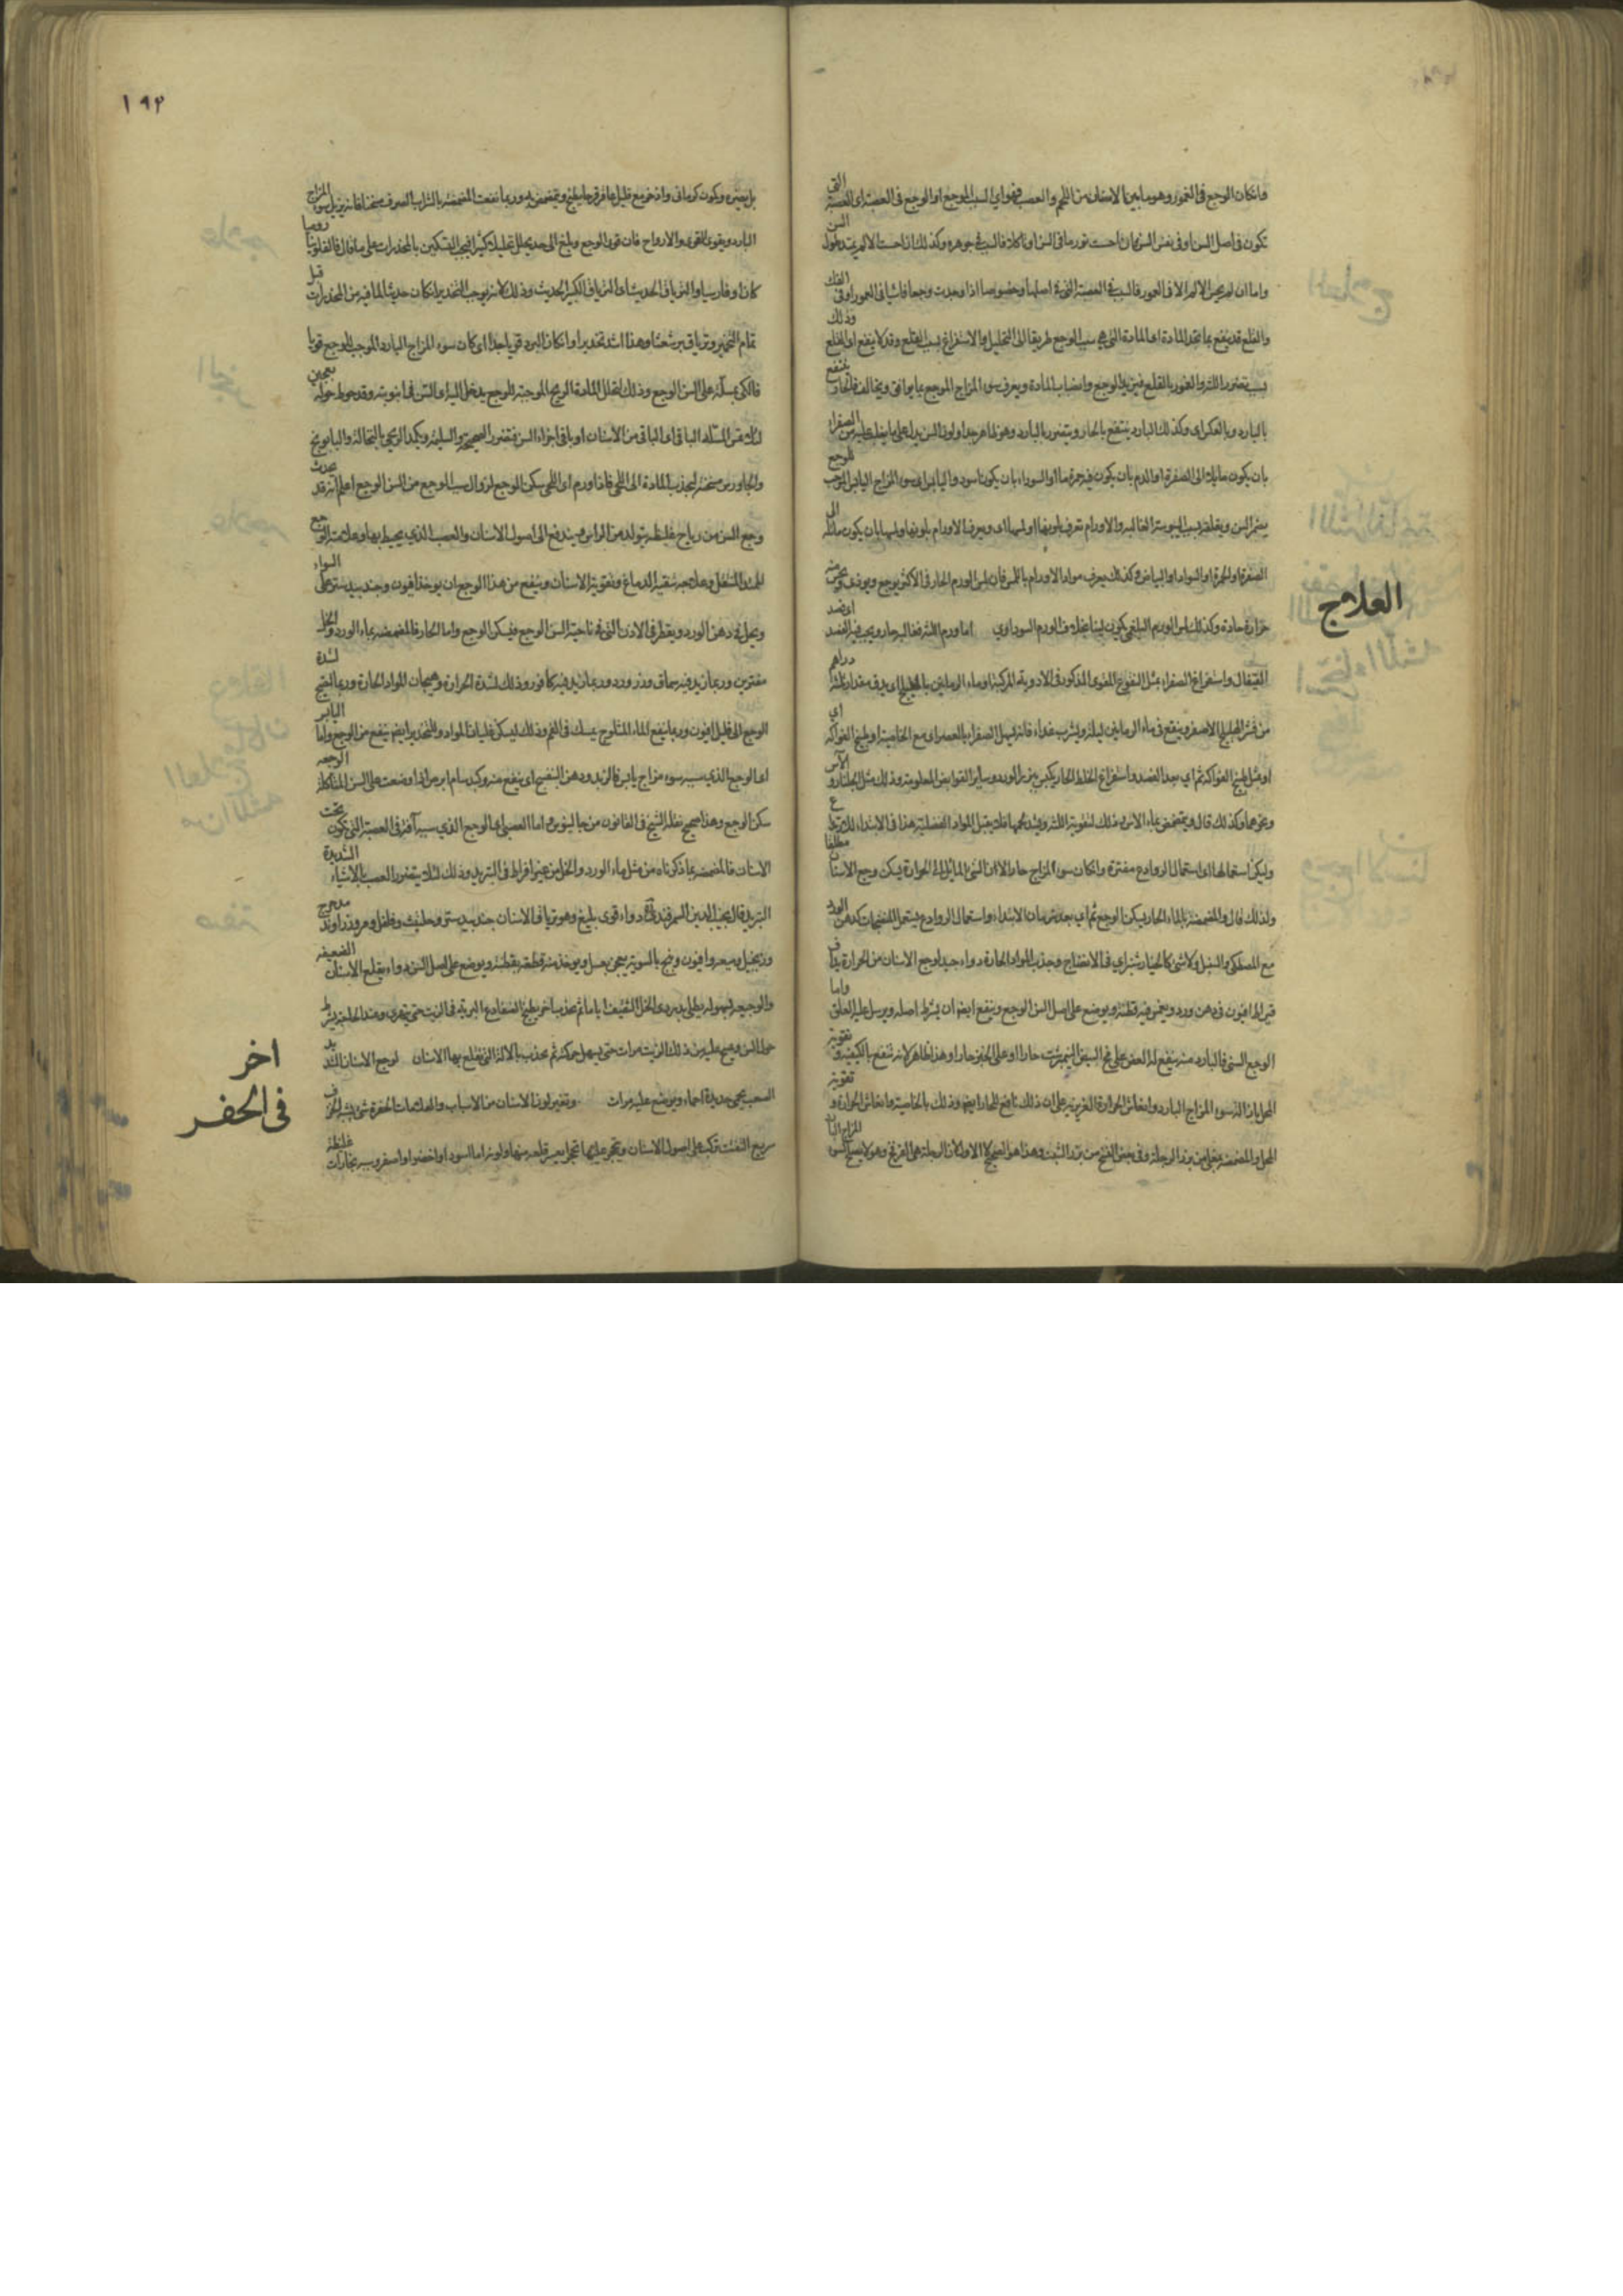 فان كان الوجع في العمور وهو ما بين الاسنان من اللحم والعصب فهو اي السبب الموجع او الوجع في العصبة اي العصبة التي
تكون في اصل السن او في نفس السن فان احست تورما في السن او تاكلا فالسبب في جوهره وكذلك ان احست الالم يمتد طول السن
واما ان لم يحس الالم الا في العمور فالسبب في العصبة التي في اصلها وخصوصا اذا وجدت وجعا فاشيا في العمور او في الفك
والقلع قد ينفع بما يجد المادة اي المادة التي هي سبب الوجع طريقا الى التحليل والاستفراغ بسبب القلع وقد لا ينفع اي القلع وذلك
بسبب تضرر اللثة والعمور بالقلع فيزيد الوجع وانصباب المادة ويعرف سوء المزاج الموجع بما يوافق ويخالف فالحار ينتفع
بالبارد وبالعكس اي وكذلك البارد ينتفع بالحار ويتضرر بالبارد وهو ظاهر جدا ولون السن يدل على ما يغلب عليه من الصفراء
بان يكون مايلا الى الصفرة او الدم بان يكون فيه حمرة ما او السوداء بان يكون اسود واليابس اي سوء المزاج اليابس الموجب للوجع
يضمر السن ويقلقه بسبب اليبوسة الغالبة والاورام تعرف بلونها ولمسها اي ويعرف الاورام بلونها ولمسها بان يكون مائلة الى
الصفرة او الحمرة او السواد او البياض وكذلك يعرف مواد الاورام باللمس فان لمس الورم الحار في الاكثر يوجع ويوذي ويحس منه
حرارة حادة وكذلك لمس الورم البلغمي يكون لينا بخلاف الورم السوداوي اما ورم اللثة فغالبه حار ويجب فيه الفصد اي فصد
العلاج
القيفال واستفراغ الصفراء بمثل النقوع المقوى المذكور في الادوية المركبة او ماء الرمانين بالهليلج اي يدق مقدار ثلثة دراهم
من قشر الهليلج الاصفر وينقع في ماء الرمانين ليلة ويشرب غداء فانه يسهل الصفراء بالعصر اي مع الخاصية او طبيخ الفواكه
او مثل طبيخ الفواكه ثم اي بعد الفصد واستفراغ الخلط الحار يكبس ببزر الورد وسائر القوابض المعلومة وذلك مثل الجلنار والآس
ونحوهما وكذلك قال ويتمضمض بماء الاس وذلك لتقوية اللثة ويشد لحمها فلا يقبل المواد الفضلية هذا في الابتداء
وليكن استعمالها اي استعمال الروادع مفترة وان كان سوء المزاج حارا لان الشئ المائل الى الحرارة يسكن وجع الاسنان مطلقا
ولذلك قال والمضمضة بالماء الحار يسكن الوجع ثم اي بعد زمان الابتداء واستعمال الروادع يستعمل المنضجات كدهن الورد
مع المصطكى والسنبل ولا شئ كالخيار شنبر اي في الانضاج وجذب المواد الحارة دواء جيد لوجع الاسنان من الحرارة يداف
قيراط افيون في دهن ورد ويغمس فيه قطنة ويوضع على اصل السن الوجع وينفع ايضا ان يشرط اصله ويرسل عليه العلق واما
الوجع السني فالبارد منه ينفع له العض على مح البيض النيمبرشت حارا او على الخبز حارا وهذا ظاهر لانه تنفع بالكيفية وتقوية
المحل بازالة سوء المزاج البارد وانعاش الحرارة الغريزية على ان ذلك نافع للحار ايضا وذلك بالخاصية وانعاش الحرارة وتقوية
المحل والمضمضة بمغلى من بزر الرجلة وفي بعض النسخ من بزر الشبت وهذا هو الصحيح لا الاول لان الرجلة هي الفرفخ وهو لا يصلح لسوء المزاج البارد
١٩٢
بل يضره ويكون كرماني واذخر مع قليل عاقرقرحا يطبخ ويتمضمض به وربما نفعت المضمضة بالشراب الصرف مسخنا فانه يزيل سوء المزاج
البارد ويقوي القوى والارواح فان قوي الوجع وبلغ الى حد يحلل تحليلا كثيرا فيجب التسكين بالمخدرات على ما قال فالفلونيا روميا
كان او فارسيا والترياق الحديث او الترياق الكبير الحديث وذلك لانه يوجب التخدير اذا كان حديثا لما فيه من المخدرات قبل
تمام التخمير وترياق برشعثا وهذا اشد تخديرا وان كان البرد قويا جدا اي كان سوء المزاج البارد الموجب للوجع قويا
فالكي بمسلة على السن الوجع وذلك لتحلل المادة الريحية الموجبة للوجع يدخل اليه او السن في انبوبة وقد حوط حوله بعجين
لئلا تمس المسلة الباقي اي الباقي من الاسنان او باقي اجزاء السن فتضرر الصحيحة والسليمة ويكمد اللحي بالنخالة والبابونج
والجاورس مسخنة لجذب المادة الى اللحي فاذا ورم اي اللحي سكن الوجع لزوال سبب الوجع من السن الوجع اعلم انه قد يحدث
وجع السن من رياح غليظة يتولد من الراس ويندفع الى اصول الاسنان والعصب الذي يحيط بها وعلامته الوجع
الممتد المتنقل وعلاجه بتنقية الدماغ وتقوية الاسنان وينفع من هذا الوجع ان يوخذ افيون وجندبيدستر على السواء
ويحل في دهن الورد ويقطر في الاذن التي في ناحية السن الوجع فيسكن الوجع واما الحار فالمضمضة بماء الورد والخل
مفترين وربما زيد فيه سماق وزر ورد وربما زيد فيه كافور وذلك لشدة الحرارة وهيجان المواد الحارة وربما احتيج لشدة
الوجع الى قليل افيون وربما ينفع الماء المثلوج يمسك في الفم وذلك ليسكن غليان المواد والتخدير ايضا ينفع من الوجع واما اليابس
اي الوجع الذي سببه سوء مزاج يابس فالزبد ودهن البنفسج اي ينفع منه وكبد سام ابرص اذا وضعت على السن المتاكلة الوجعة
سكن الوجع وهذا صحيح نقله الشيخ في القانون من جالينوس واما العصبي اي الوجع الذي سببه آفة في العصبة التي تكون تحت
الاسنان فالمضمضة بما ذكرناه من مثل ماء الورد والخل من غير افراط في التبريد وذلك لئلا يتضرر العصب بالاشياء الشديدة
التبريد قال نجيب الدين السمرقندي دواء قوي بليغ وهو ترياق الاسنان جندبيدستر وحلتيت وفلفل ومر وزراوند مدحرج
وزنجبيل وميعة وافيون وبنج بالسوية يعجن بعسل ويوخذ منه قطعة بقطنة ويوضع على اصل السن دواء يقلع الاسنان الضعيفة
والوجعة بسهولة يطلى بدردي الخل الثقيف اياما ثم يجذب اخر يطبخ الضفادع البرية في الزيت حتى يتهرى وعند الحاجة يشرط
حول السن ويصب عليه من ذلك الزيت مرات حتى يسهل حركته ثم يجذب بالالة التي يقلع بها الاسنان لوجع الاسنان الشديد
اخر
الصعب يحمى حديدة احماء ويوضع عليه مرات وتغير لون الاسنان من الاسباب والعلامات الحفرة شئ يشبه الخزف
في الحفر
سريع التفتت تركب على اصول الاسنان ويتحجر عليها تحجرا يعسر قلعه منها ولونه اما اسود او اخضر او اصفر وسببه بخارات غليظة